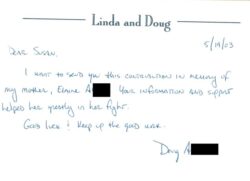 Linda and Doug
5/19/03
Dear Susan,
I want to send you this contribution in memory
of my mother, Elaine A Your information and support
helped her greatly in her fight.
Good luck & keep up the good work.
Doug A